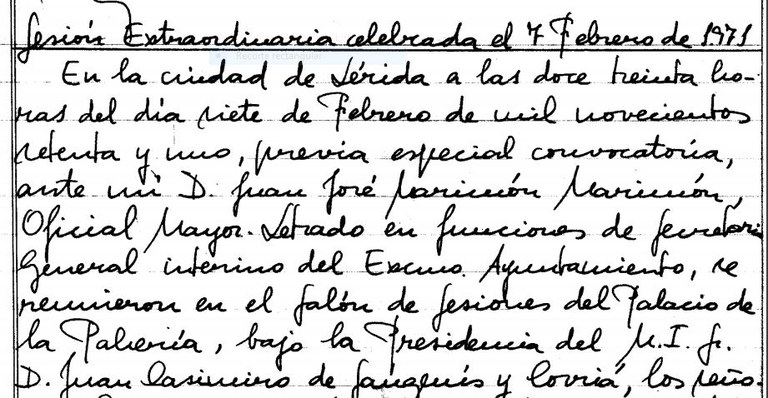 Sesión Extraordinaria celebrada el 7 Febrero de 1971
En la ciudad de Lérida a las doce treinta ho-
ras del día siete de Febrero de mil novecientos
setenta y uno, previa especial convocatoria,
ante mi D. Juan José Marimón Marimón,
Oficial Mayor-Letrado en funciones de Secretario
General interino del Excmo. Ayuntamiento, se
reunieron en el Salón de Sesiones del Palacio de
la Pahería, bajo la Presidencia del M.I. Sr.
D. Juan Casimiro de Sangenís y Corriá, los seño-